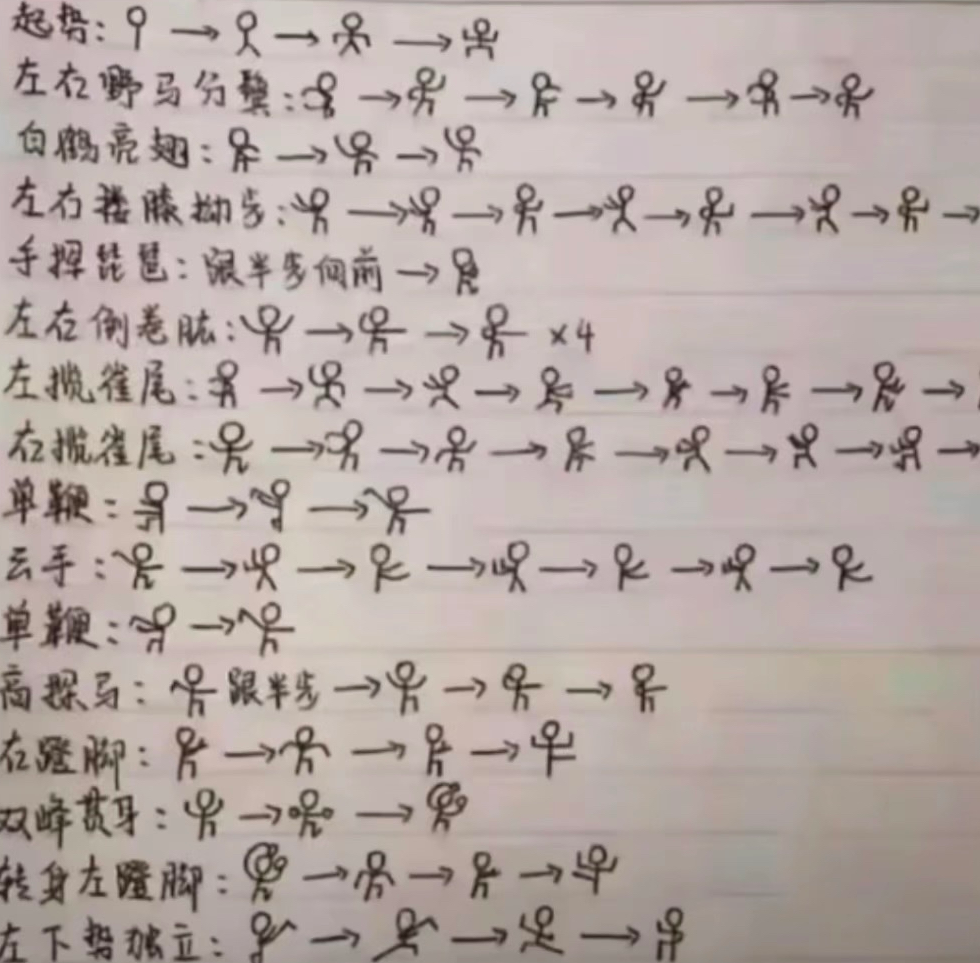 起势:
左右野马分鬃:
白鹤亮翅:
左右搂膝拗步:
手挥琵琶:跟半步向前
左右倒卷肱: ×4
左揽雀尾:
右揽雀尾:
单鞭:
云手:
单鞭:
高探马: 跟半步
右蹬脚:
双峰贯耳:
转身左蹬脚:
左下势独立: